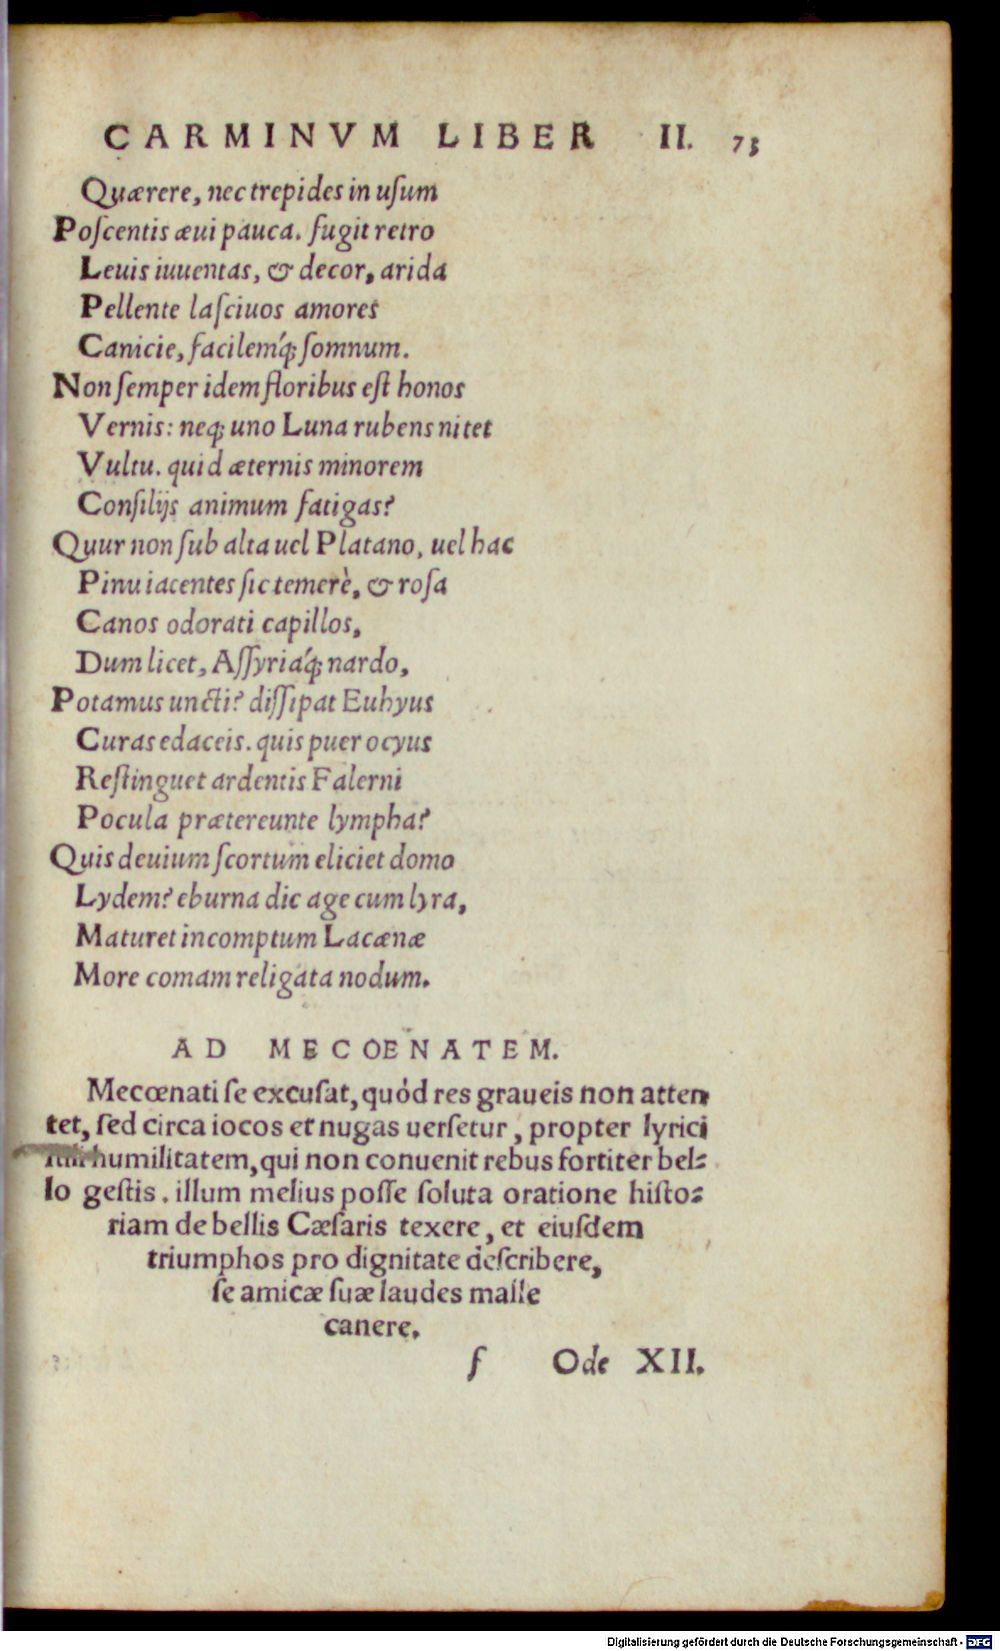 CARMINVM LIBER II. 73
Quærere, nec trepides in uſum
Poſcentis æui pauca. fugit retro
Leuis iuuentas, & decor, arida
Pellente laſciuos amores
Canicie, facilemq́; ſomnum.
Non ſemper idem floribus eſt honos
Vernis: neq; uno Luna rubens nitet
Vultu. quid æternis minorem
Conſilijs animum fatigas?
Quur non ſub alta uel Platano, uel hac
Pinu iacentes ſic temerè, & roſa
Canos odorati capillos,
Dum licet, Aſſyriaq́; nardo,
Potamus uncti? diſſipat Euhyus
Curas edaceis. quis puer ocyus
Reſtinguet ardentis Falerni
Pocula prætereunte lympha?
Quis deuium ſcortum eliciet domo
Lydem? eburna dic age cum lyra,
Maturet incomptum Lacænæ
More comam religata nodum.
AD MECOENATEM.
Mecœnati ſe excuſat, quód res graueis non atten
tet, ſed circa iocos et nugas uerſetur, propter lyrici
humilitatem, qui non conuenit rebus fortiter bel⸗
lo geſtis. illum melius poſſe ſoluta oratione hiſto⸗
riam de bellis Cæſaris texere, et eiuſdem
triumphos pro dignitate deſcribere,
ſe amicæ ſuæ laudes malle
canere.
f Ode XII.
Digitalisierung gefördert durch die Deutsche Forschungsgemeinschaft - DFG